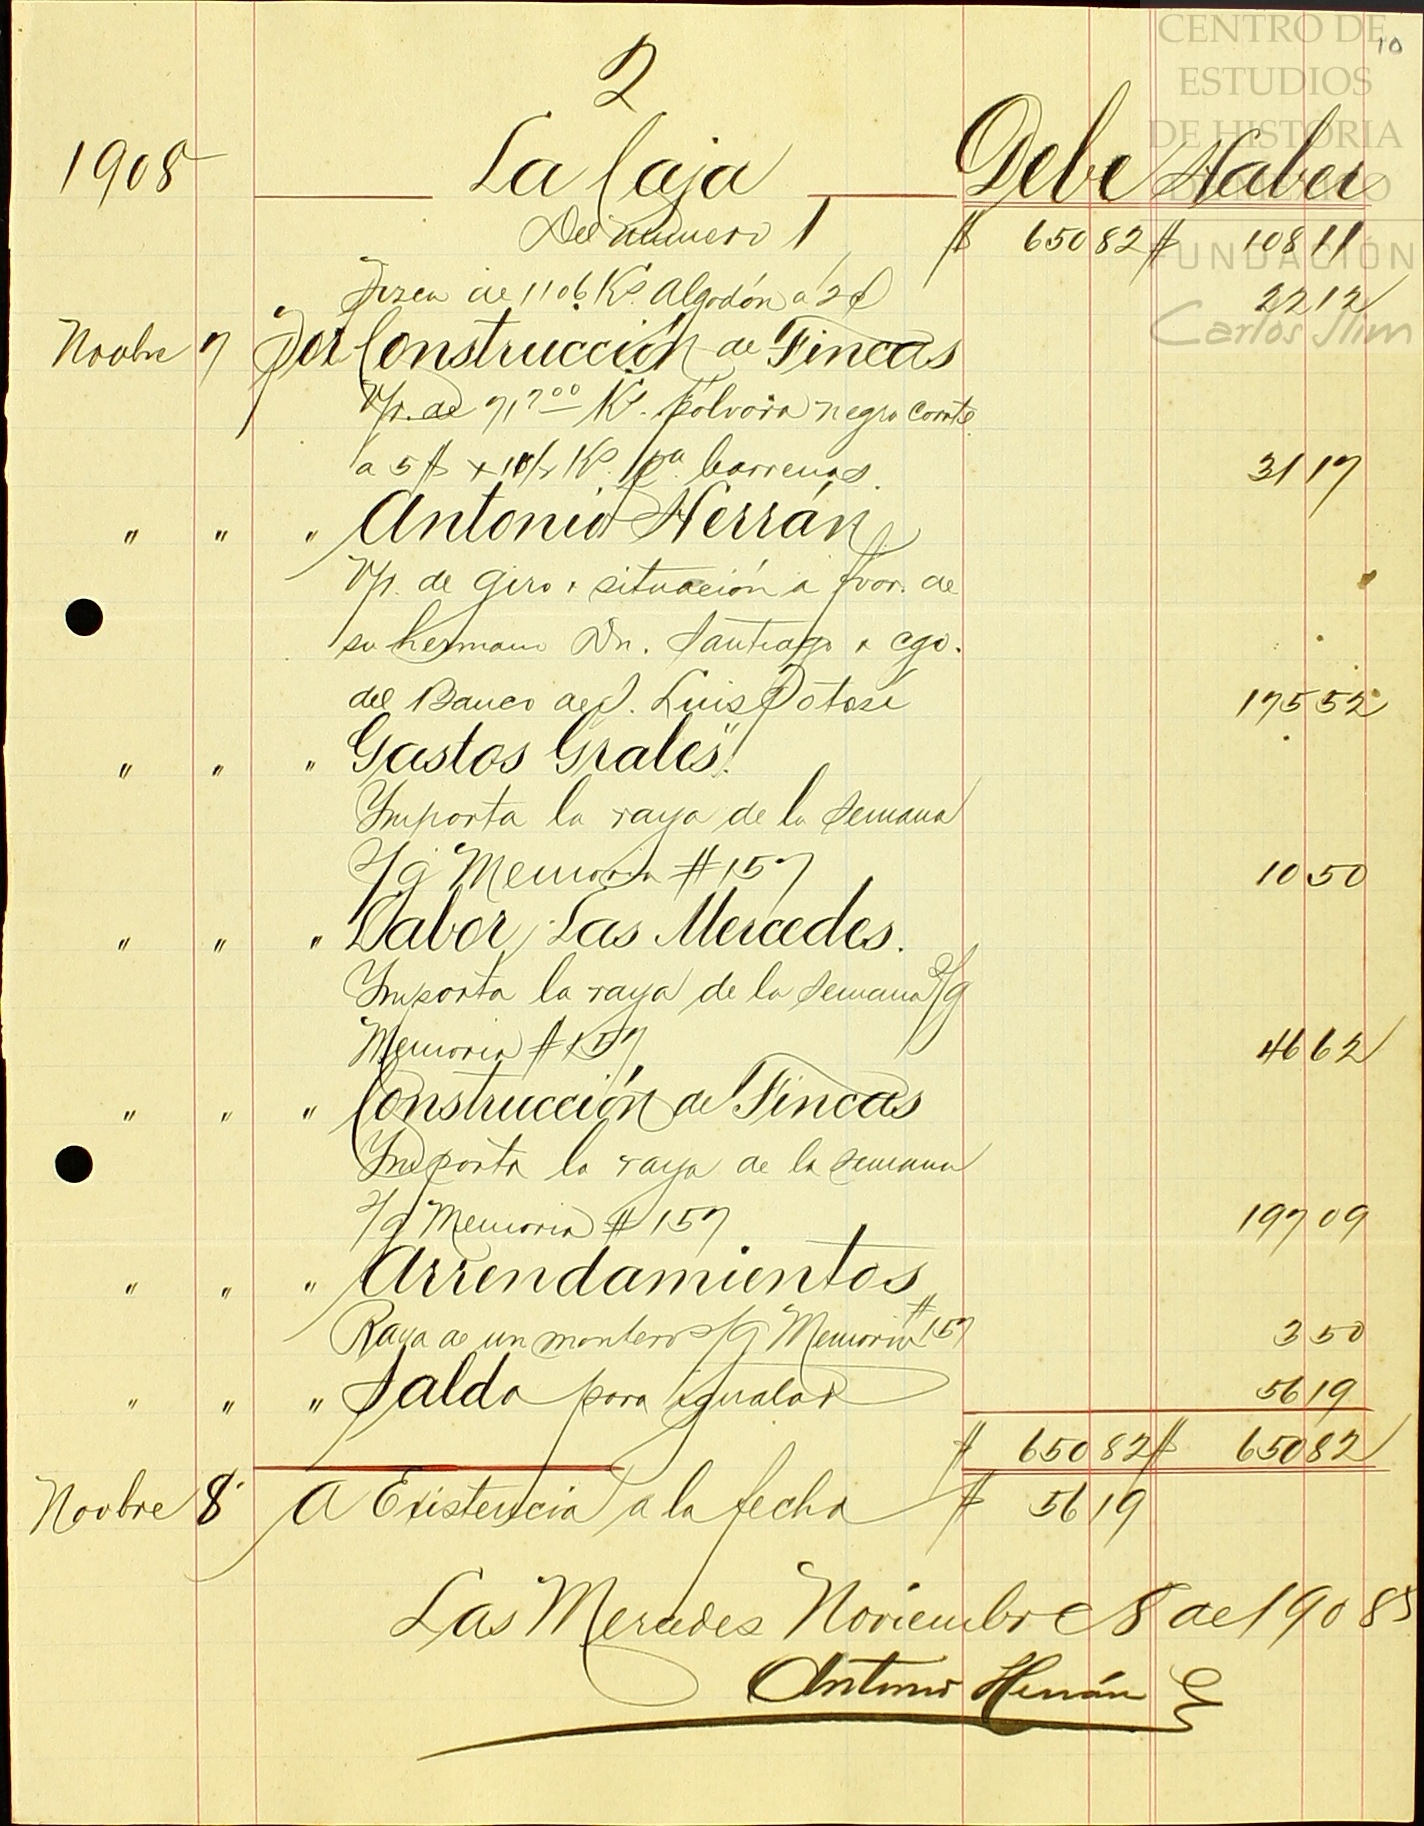 CENTRO DE
ESTUDIOS
DE HISTORIA
DE MÉXICO
FUNDACIÓN
Carlos Slim
10
2
1908 La Caja Debe Haber
Del número 1 $ 650 82 $ 108 11
" de 1106 Ks. Algodón a 2¢ 22 12
Novbre 7 Por Construcción de Fincas
V/r. de 71,700 Ks. pólvora negra corrte.
a 5 $ Ks. pa. barrenas. 31 17
" " " Antonio Herrán
V/r. de giro y situación a fvor. de
su hermano Dn. Santiago a cgo.
del Banco de S. Luis Potosí 175 52
" " " Gastos Grales".
Importa la raya de la semana
s/g Memoria # 157 10 50
" " " Labor Las Mercedes.
Importa la raya de la semana s/g
Memoria # 157 46 62
" " " Construcción de Fincas
Importa la raya de la semana
s/g Memoria # 157 197 09
" " " Arrendamientos
Raya de un montero s/g Memoria # 157 3 50
" " " Saldo para igualar 56 19
$ 650 82 $ 650 82
Novbre 8 A Existencia a la fecha $ 56 19
Las Mercedes Noviembre 8 de 1908
Antonio Herrán